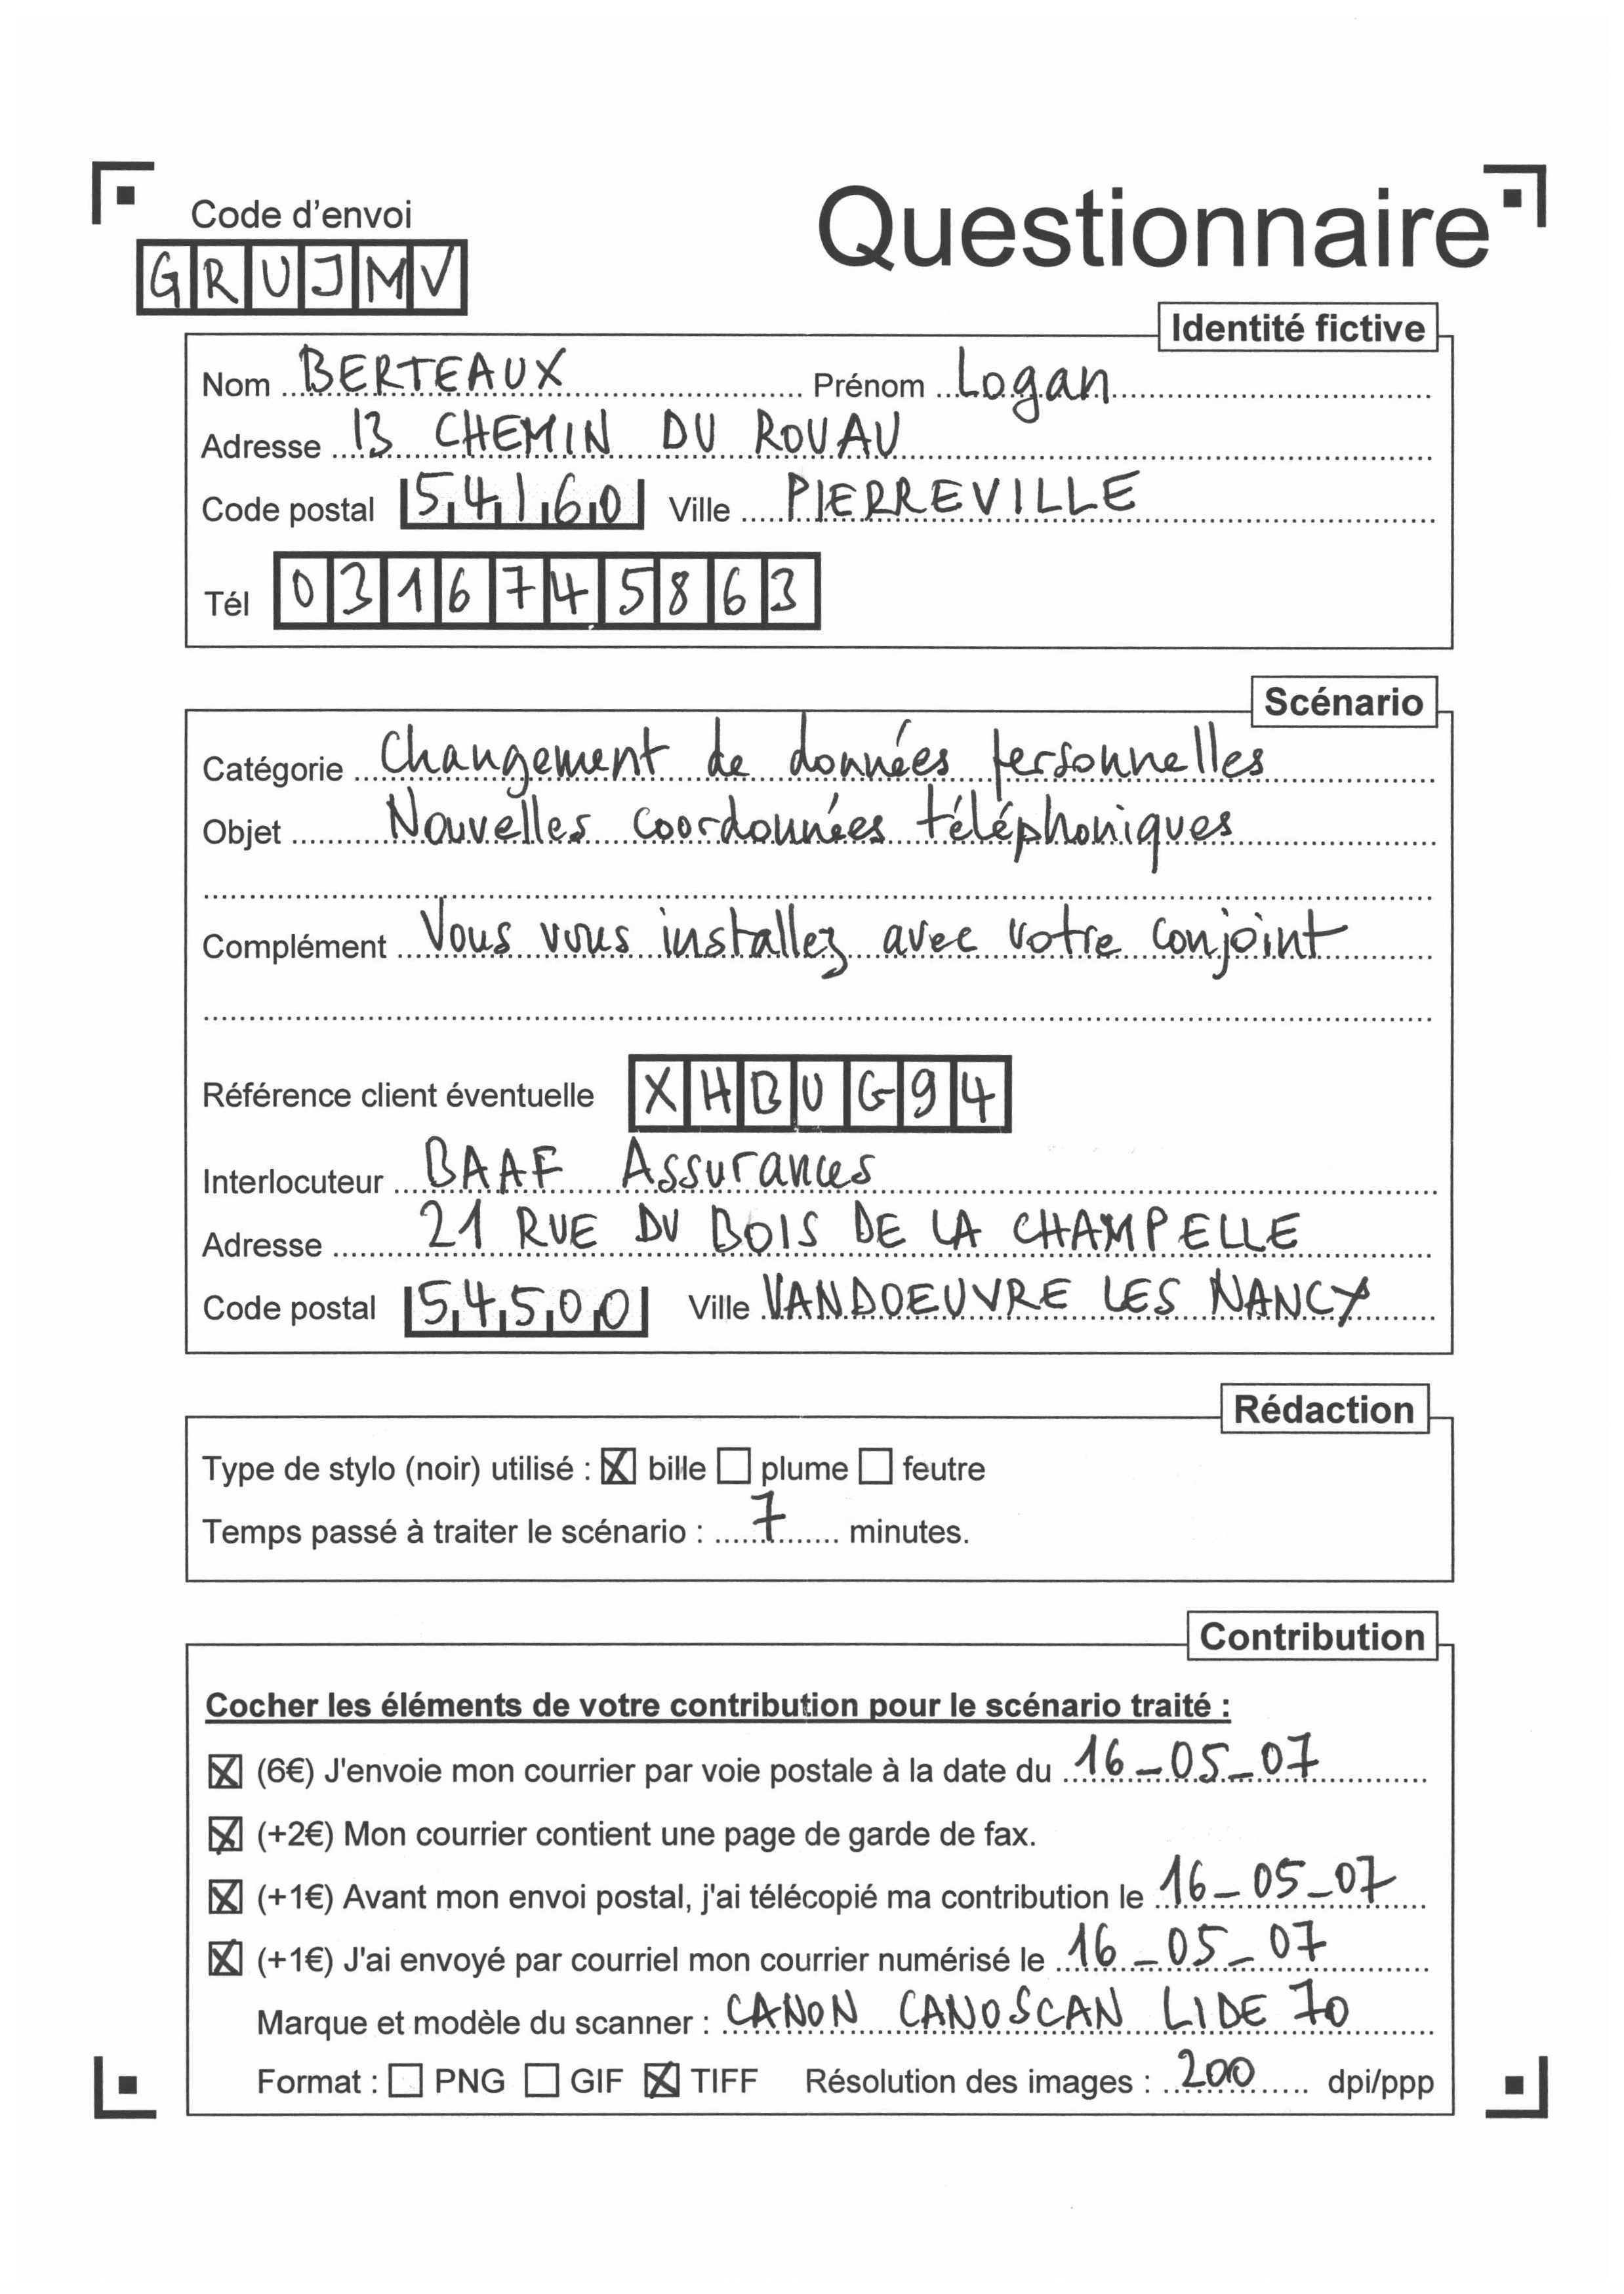 Code d'envoi
Questionnaire
GRUJMV
Identité fictive
Nom BERTEAUX Prénom Logan
Adresse 13 CHEMIN DU ROUAU
Code postal 54160 Ville PIERREVILLE
Tél 0316745863
Scénario
Catégorie Changement de données personnelles
Objet Nouvelles coordonnées téléphoniques
Complément Vous vous installez avec votre conjoint
Référence client éventuelle XHBUG94
Interlocuteur BAAF Assurances
Adresse 21 RUE DU BOIS DE LA CHAMPELLE
Code postal 54500 Ville VANDOEUVRE LES NANCY
Rédaction
Type de stylo (noir) utilisé : ☒ bille ☐ plume ☐ feutre
Temps passé à traiter le scénario : 7 minutes.
Contribution
Cocher les éléments de votre contribution pour le scénario traité :
☒ (6€) J'envoie mon courrier par voie postale à la date du 16-05-07
☒ (+2€) Mon courrier contient une page de garde de fax.
☒ (+1€) Avant mon envoi postal, j'ai télécopié ma contribution le 16-05-07
☒ (+1€) J'ai envoyé par courriel mon courrier numérisé le 16-05-07
Marque et modèle du scanner : CANON CANOSCAN LIDE 70
Format : ☐ PNG ☐ GIF ☒ TIFF Résolution des images : 200 dpi/ppp